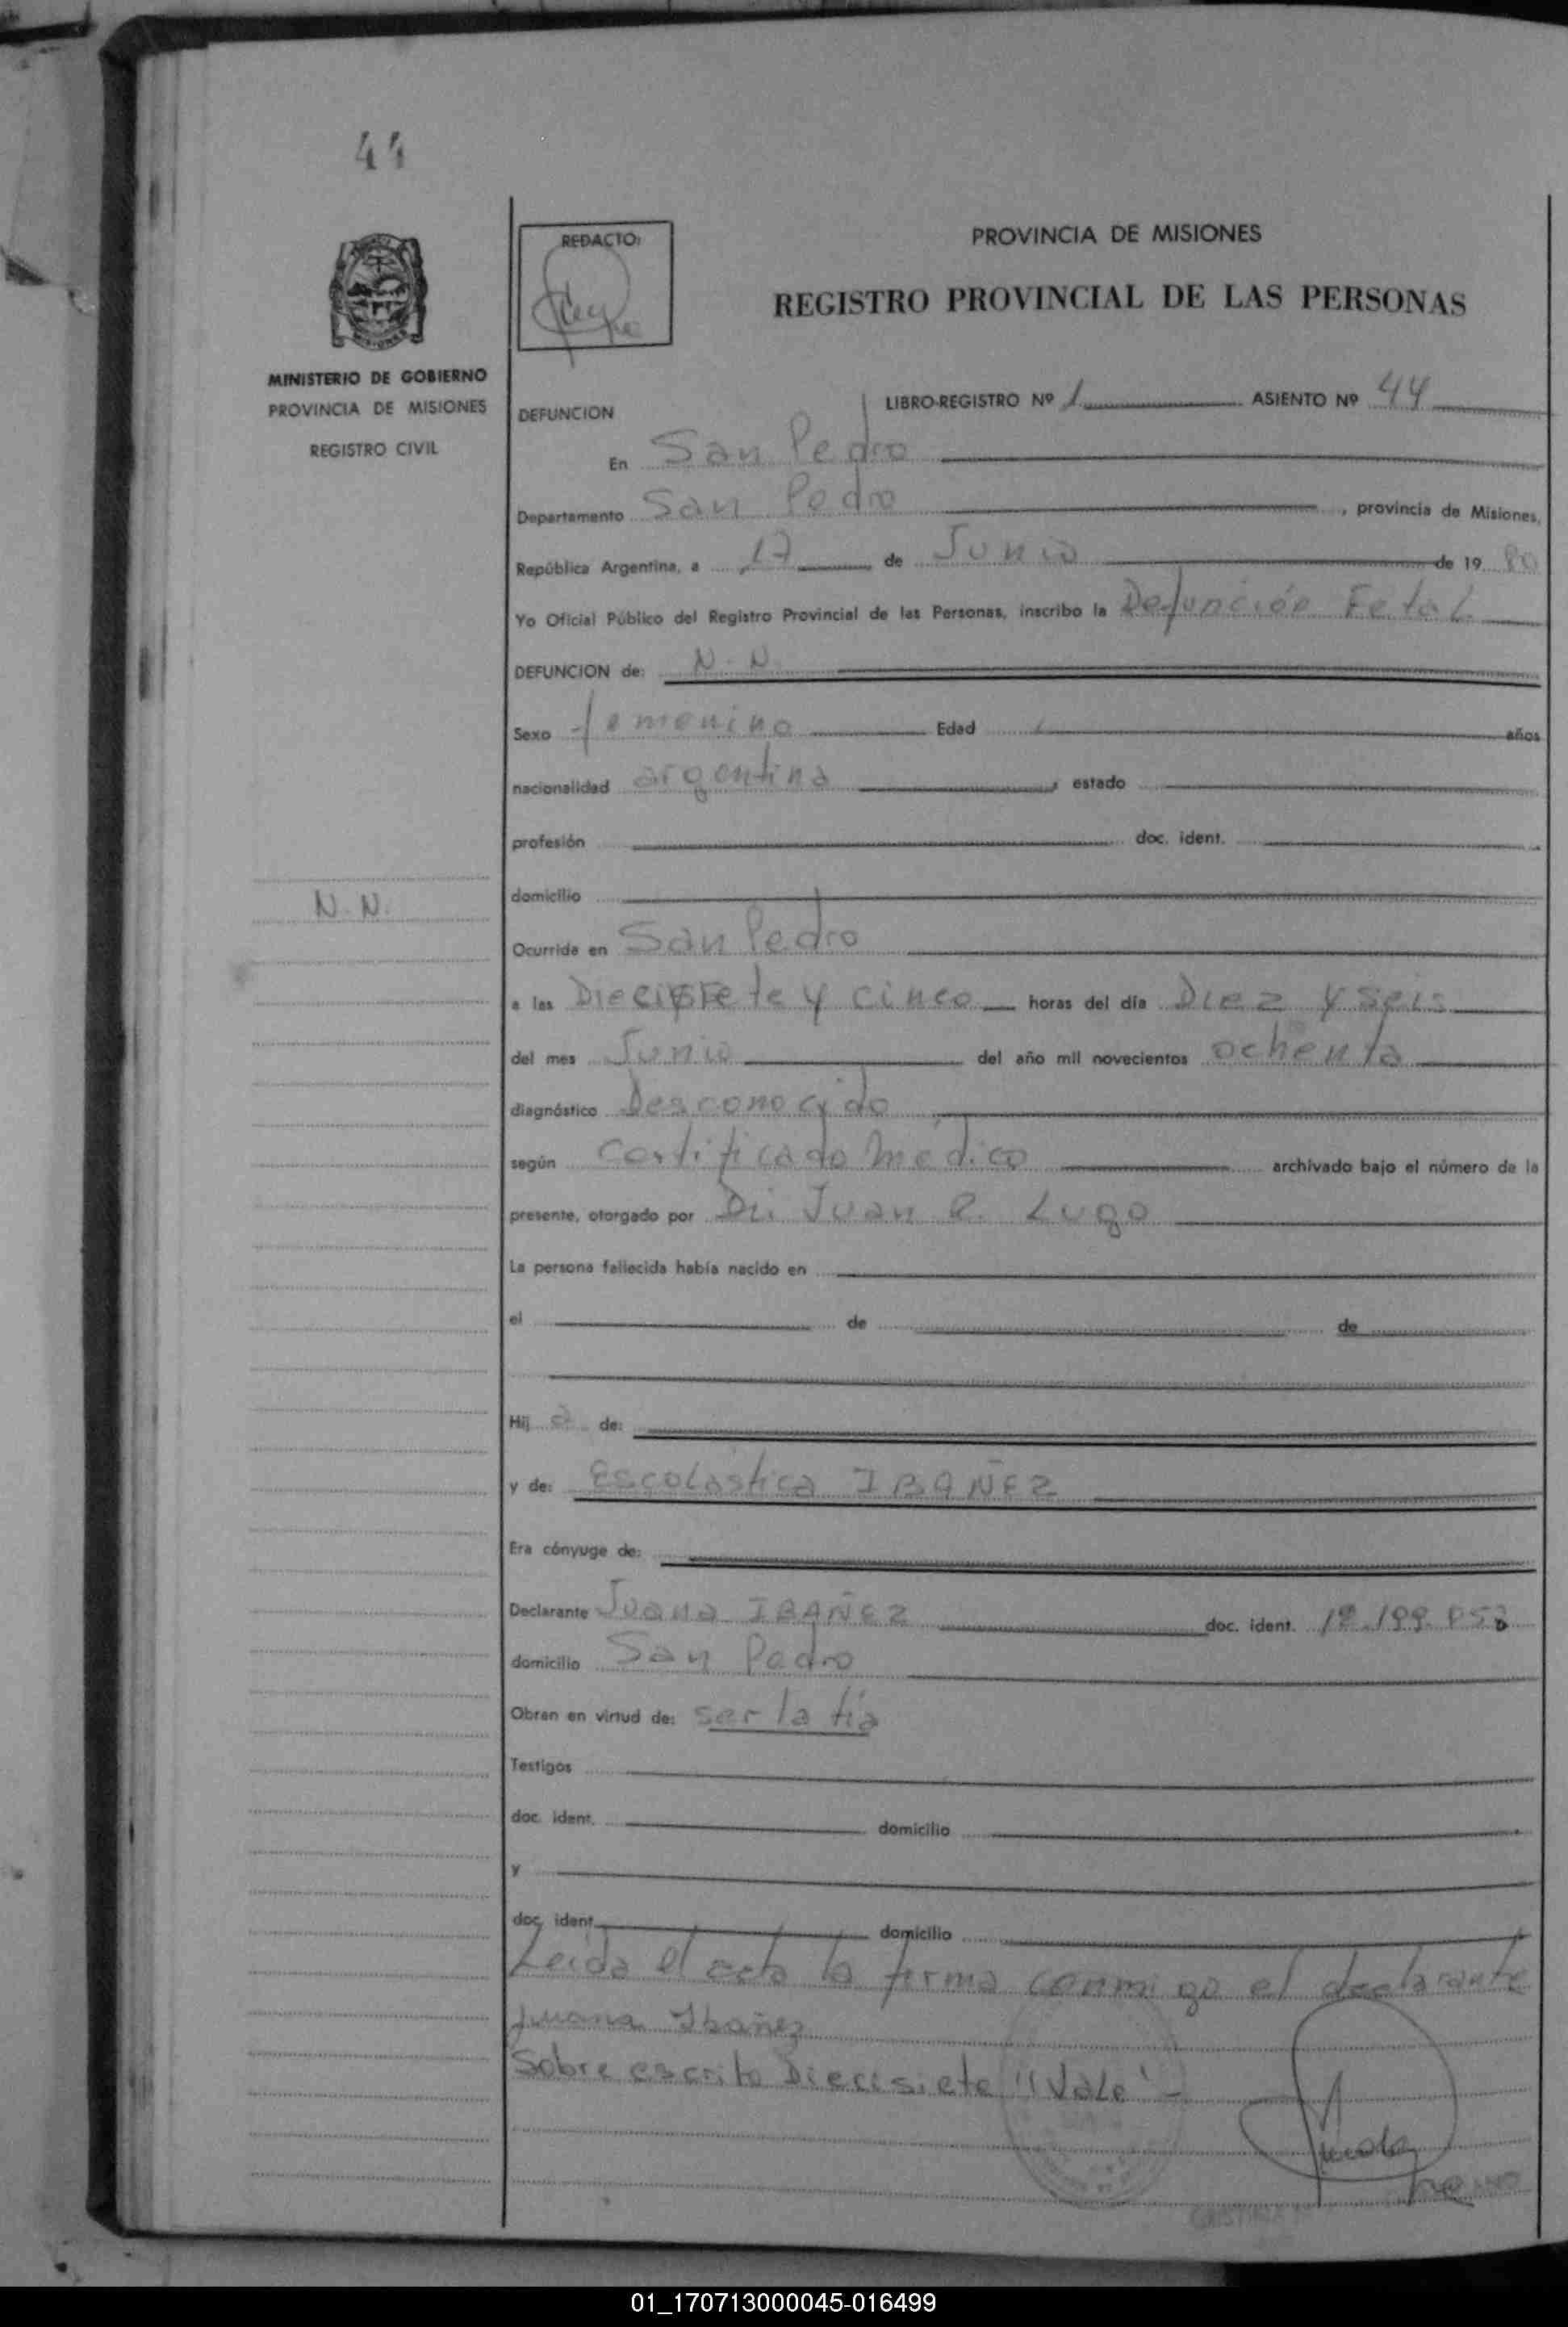 44
REDACTO:
PROVINCIA DE MISIONES
REGISTRO PROVINCIAL DE LAS PERSONAS
MINISTERIO DE GOBIERNO
PROVINCIA DE MISIONES
REGISTRO CIVIL
DEFUNCION
LIBRO-REGISTRO Nº 1 ASIENTO Nº 44
En San Pedro
Departamento San Pedro, provincia de Misiones,
República Argentina, a 17 de Junio de 19 80
Yo Oficial Público del Registro Provincial de las Personas, inscribo la Defunción Fetal
DEFUNCION de: N. N.
Sexo femenino Edad años
nacionalidad argentina, estado
profesión doc. ident.
domicilio
N. N.
Ocurrida en San Pedro
a las Diecisiete y cinco horas del día Diez y seis
del mes Junio del año mil novecientos ochenta
diagnóstico Desconocido
según certificado médico archivado bajo el número de la
presente, otorgado por Dr. Juan R. Lugo
La persona fallecida había nacido en
el de de
Hij a de:
y de: Escolastica IBAÑEZ
Era cónyuge de:
Declarante Juana IBAÑEZ doc. ident.
domicilio San Pedro
Obran en virtud de: ser la tía
Testigos
doc. ident. domicilio
y
doc. ident. domicilio
Leída el acta la firma conmigo el declarante
Juana Ibañez
Sobre escrito Diecisiete "Vale" -
01_170713000045-016499